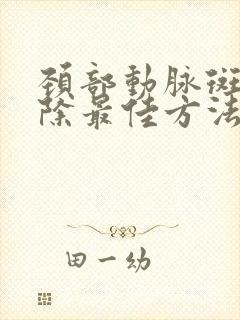 頸部動脉斑
除最佳方法
田一幼